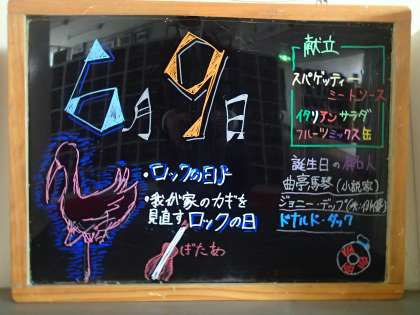 6月9日
・ロックの日♪
・我が家のカギを
見直すロックの日
ばたお
献立
スパゲッティー
ミートソース
イタリアンサラダ
フルーツミックス缶
誕生日の有名人
曲亭馬琴(小説家)
ジョニー・デップ
ドナルド・ダック